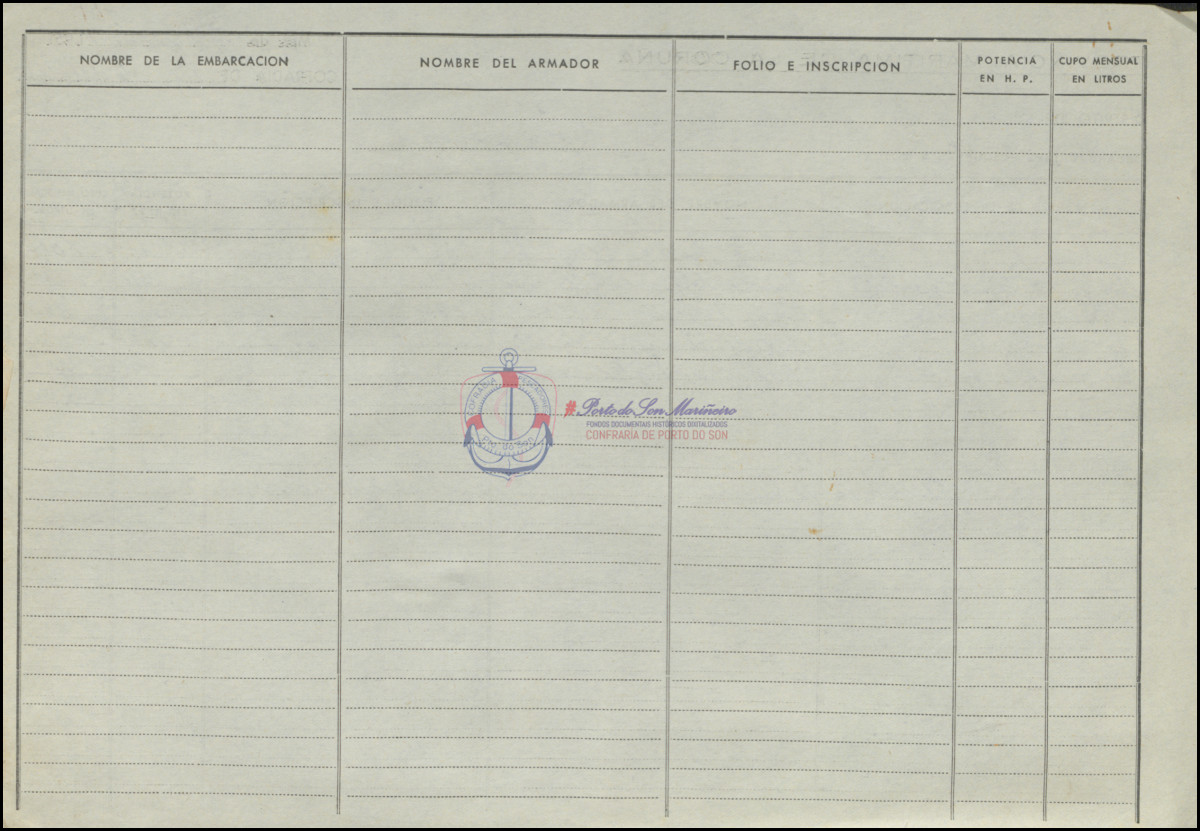 NOMBRE DE LA EMBARCACION
NOMBRE DEL ARMADOR
FOLIO E INSCRIPCION
POTENCIA
EN H. P.
CUPO MENSUAL
EN LITROS
COFRADÍA PESCADORES
Pto. do Son
#Porto do Son Mariñeiro
FONDOS DOCUMENTAIS HISTÓRICOS DIXITALIZADOS
CONFRARÍA DE PORTO DO SON